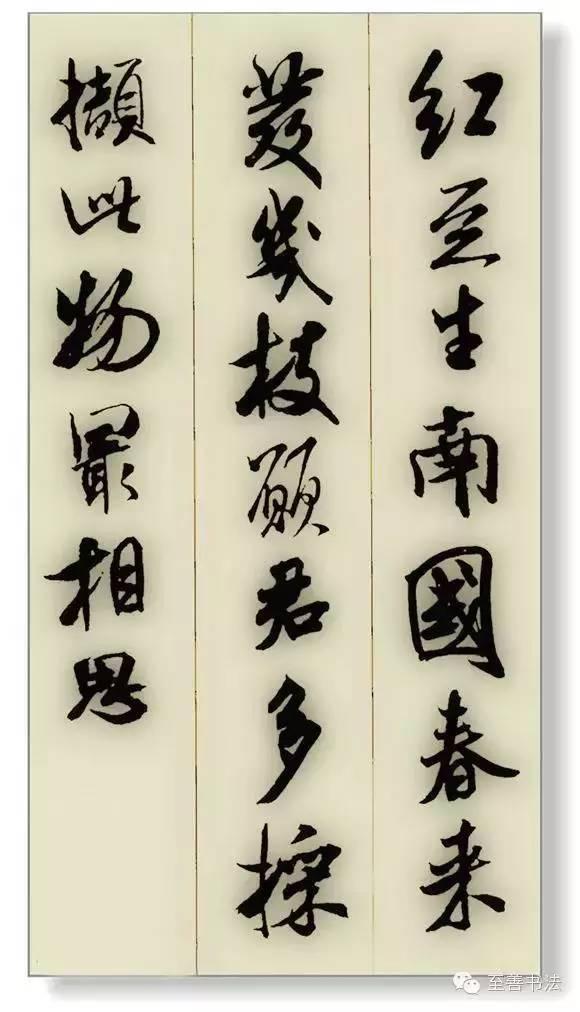 红豆生南國春来
發幾枝願君多採
擷此物最相思
至善书法